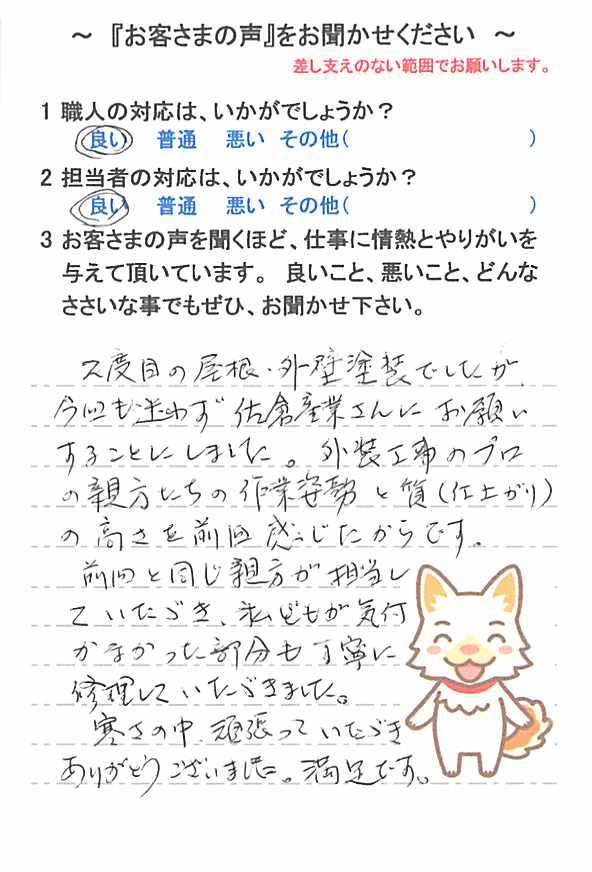 ～ 『お客さまの声』をお聞かせください ～
差し支えのない範囲でお願いします。
1 職人の対応は、いかがでしょうか？
良い 普通 悪い その他( )
2 担当者の対応は、いかがでしょうか？
良い 普通 悪い その他( )
3 お客さまの声を聞くほど、仕事に情熱とやりがいを
与えて頂いています。 良いこと、悪いこと、どんな
ささいな事でもぜひ、お聞かせ下さい。
2度目の屋根・外壁塗装でしたが、
今回も迷わず佐倉産業さんにお願い
することにしました。外装工事のプロ
の親方たちの作業姿勢と質(仕上がり)
の高さを前回感じたからです。
前回と同じ親方が担当し
ていただき、私どもが気付
かなかった部分も丁寧に
修理していただきました。
寒さの中、頑張っていただき
ありがとうございました。満足です。